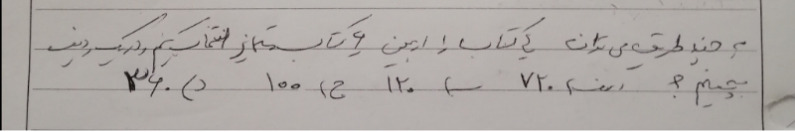 به چند طریق می توان ۴ کتاب را از بین ۶ کتاب متمایز انتخاب کنیم و در یک ردیف
بچینیم ؟ الف) ۷۲۰ ب) ۱۲۰ ج) ۱۰۰ د) ۳۶۰